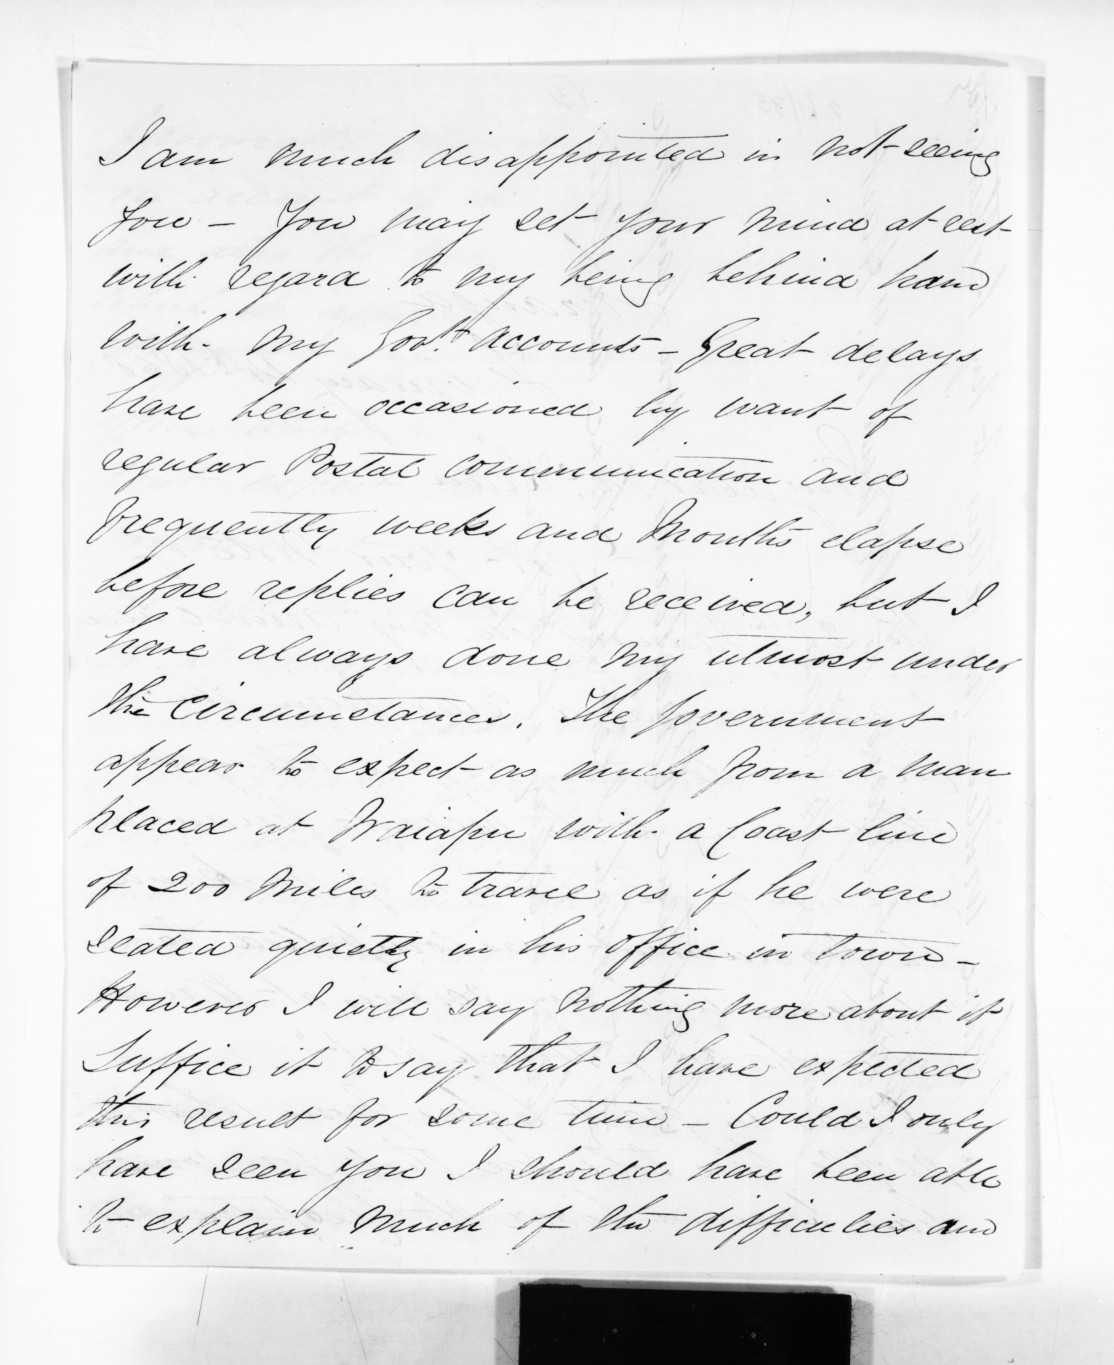 I am much disappointed in not seeing
you – You may set your mind at rest
with regard to my being behind hand
with my Govt. accounts – Great delays
have been occasioned by want of
regular Postal communication and
frequently weeks and Months elapse
before replies can be received, but I
have always done my utmost under
the circumstances. The Government
appear to expect as much from a man
placed at Waiapu with a Coast line
of 200 Miles to travel as if he were
seated quietly in his office in town –
However I will say nothing more about it
Suffice it to say that I have expected
this result for some time – Could I only
have seen you I should have been able
to explain much of the difficulies and